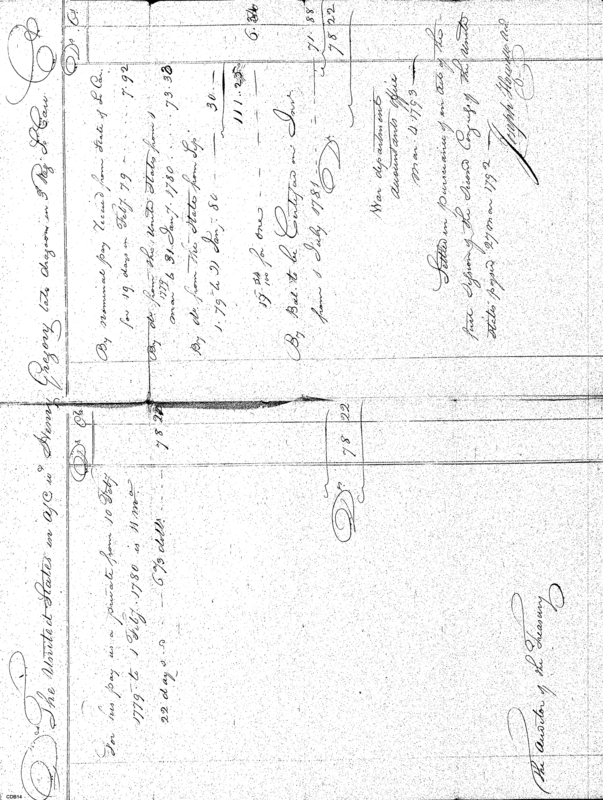 Dr The United States in A/C wt Henry Gregory late dragoon in 3 Reg S. Car. Cr
Ds 90s
For his pay as a private from 10 Feby
1779 to 1 Feby 1780 is 11 mos
22 days @ 6 2/3 dolls 78 22
Ds 78 22
The Auditor of the Treasury
Ds 90s
By nominal pay recd from State of S Car.
for 19 days in Feby 79 7.92
By do from the United States from 1
mar 1779 to 31 Jany 1780 73.33
By do from the States from Sep
1. 79 to 31 Jany 80 30
111.25
for one 6.34
By Bal. to be Certifyed on Int.
from 1 July 1781 71.88
Ds 78 22
War department
Accountants office
Mar 4 1793
Settled in pursuance of an act of the
first Session of the Second Congress of the United
States passed 27 Mar 1792
Joseph Howell
CDB14